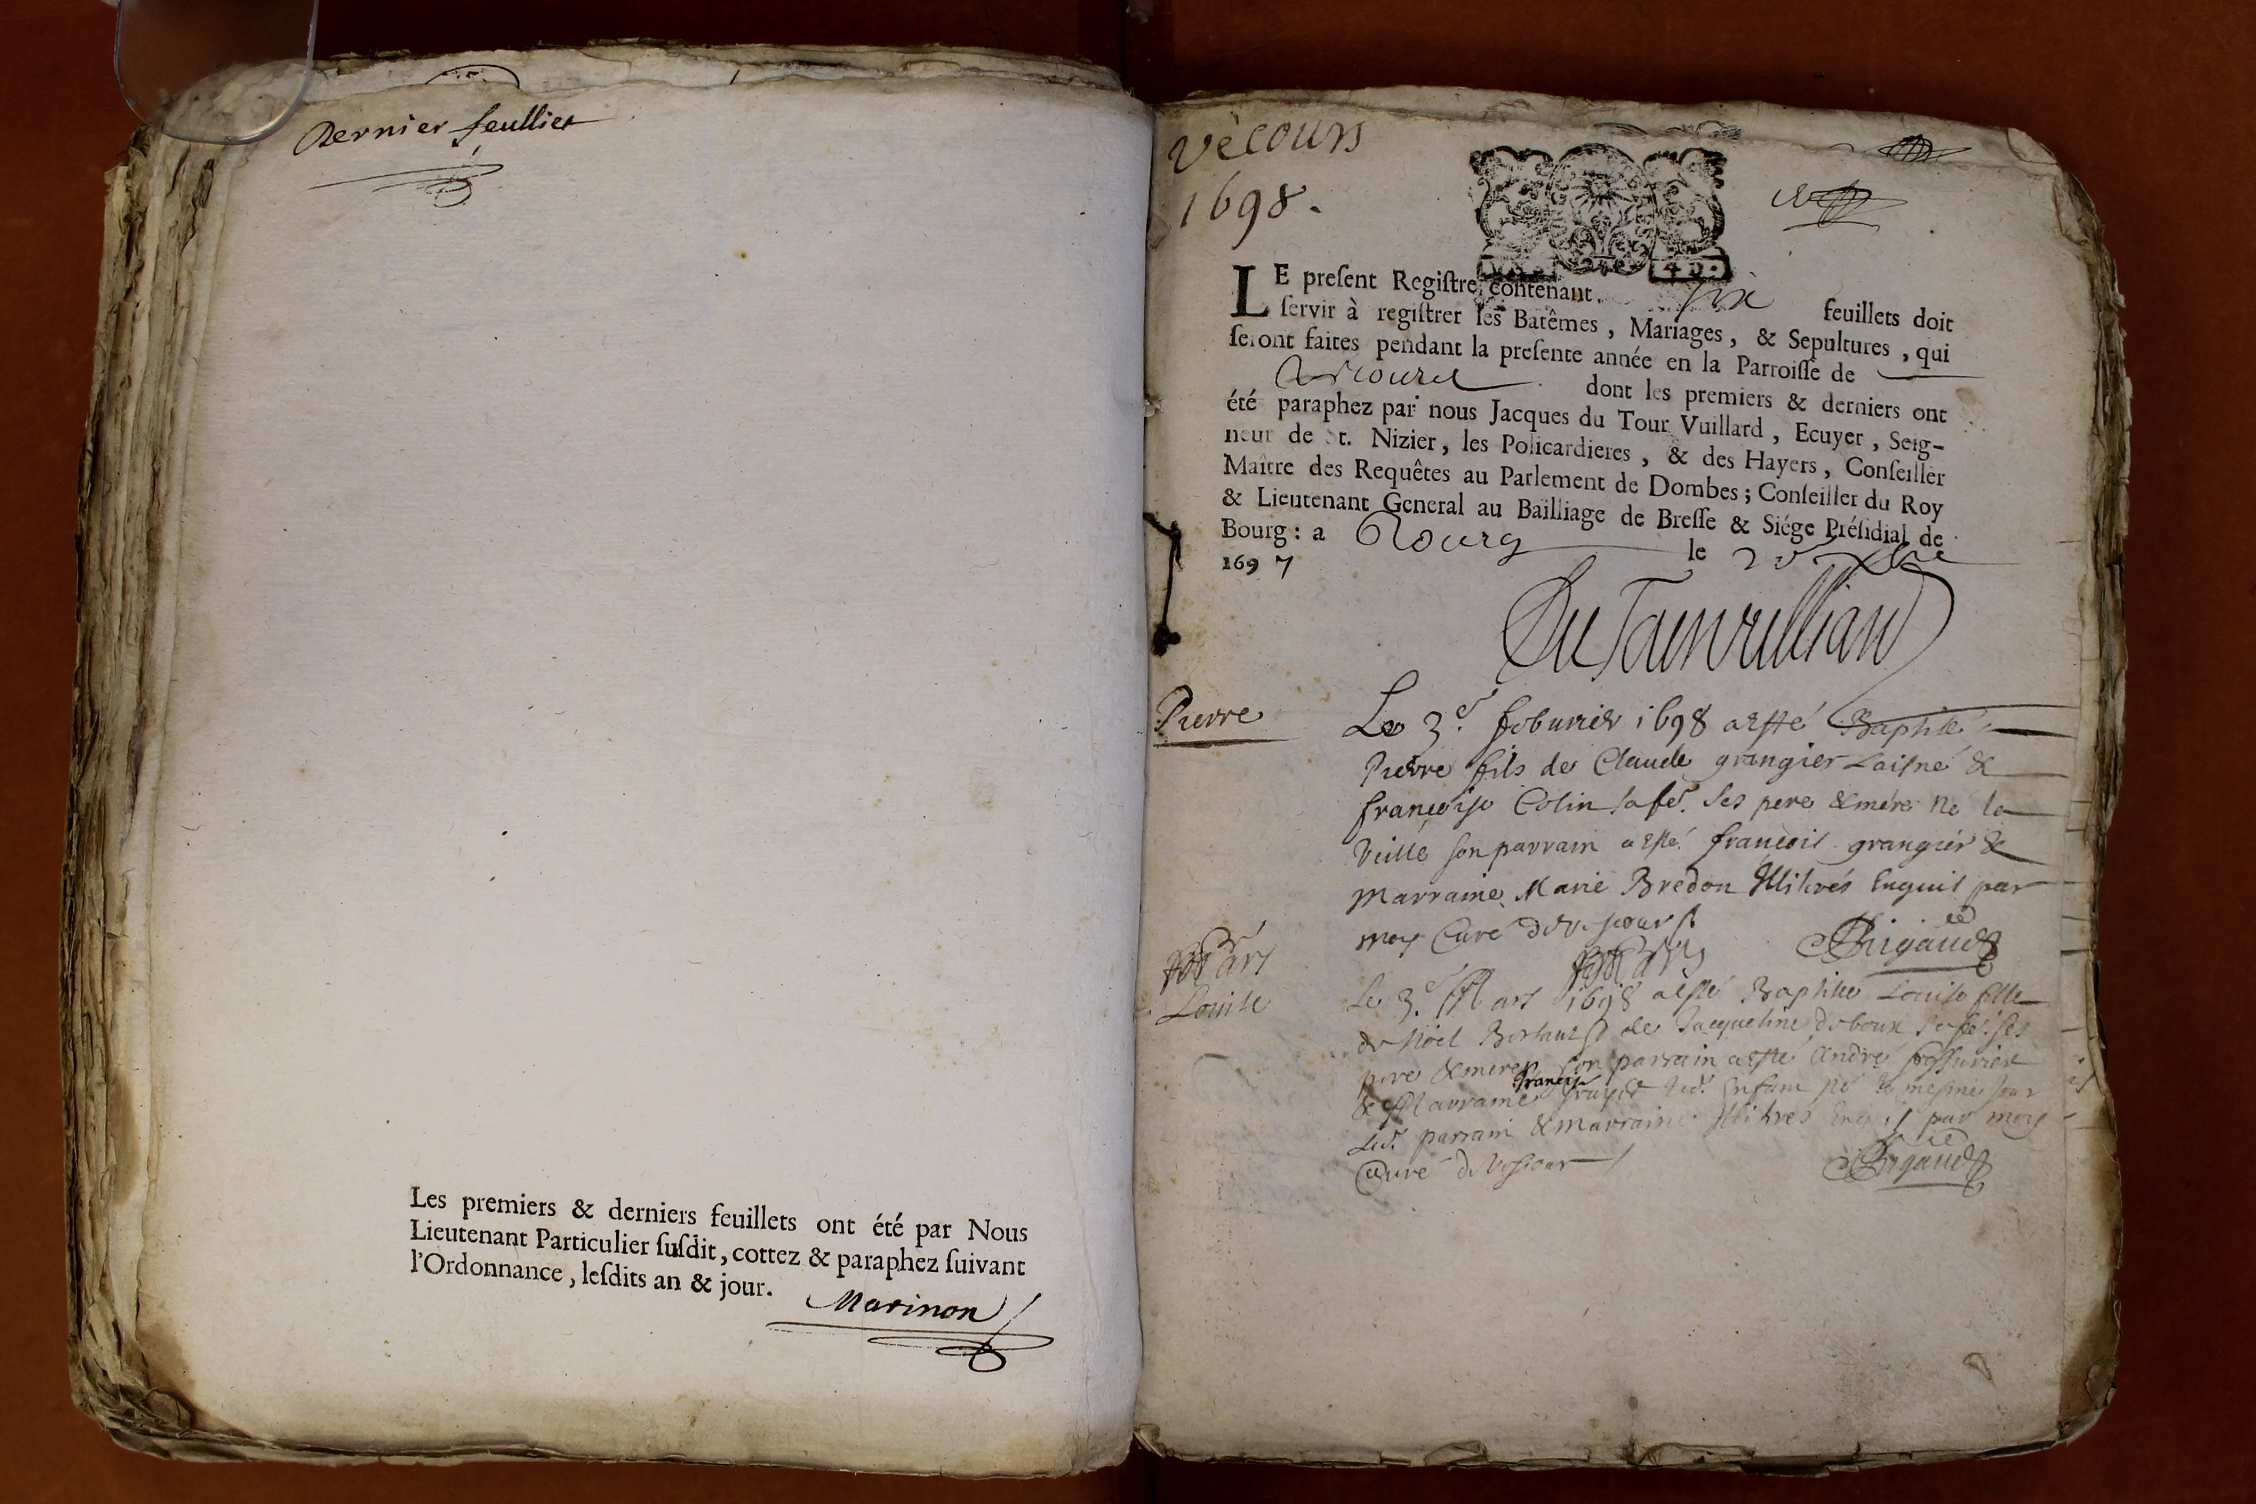 Dernier feullier
Les premiers & derniers feuillets ont été par Nous
Lieutenant Particulier suſdit, cottez & paraphez suivant
l'Ordonnance, leſdits an & jour.
Marinon
vècours
1698.
LE preſent Regiſtre, contenant six feuillets doit
ſervir à regiſtrer les Batêmes, Mariages, & Sepultures, qui
ſeront faites pendant la preſente année en la Parroiſſe de
dont les premiers & derniers ont
été paraphez par nous Jacques du Tour Vuillard, Ecuyer, Seig-
neur de St. Nizier, les Policardieres, & des Hayers, Conſeiller
Maître des Requêtes au Parlement de Dombes; Conſeiller du Roy
& Lieutenant General au Bailliage de Breſſe & Siége Préſidial de
Bourg: a Bourg le 25 xbre
1697
Pierre
Le 3e. feburier 1698 a esté Baptisé
Pierre fils de Claude grangier Laisné &
françoise Colin sa fe. ses pere & mére né la
Veille son parrain a esté françois grangier &
Marraine Marie Bredon Illitrés Enquis par
moy Curé de
Rigaud
Mars
Louise
Le 3e. Mars 1698 a esté Baptisée Louise fille
de Noël de Jacqueline sa fe. ses
pere & mere son parrain a esté André
& Marraine françoise Enfant né le mesme jour
Led. parrain & marraine Illitrés par moy
Curé de
Rigaud